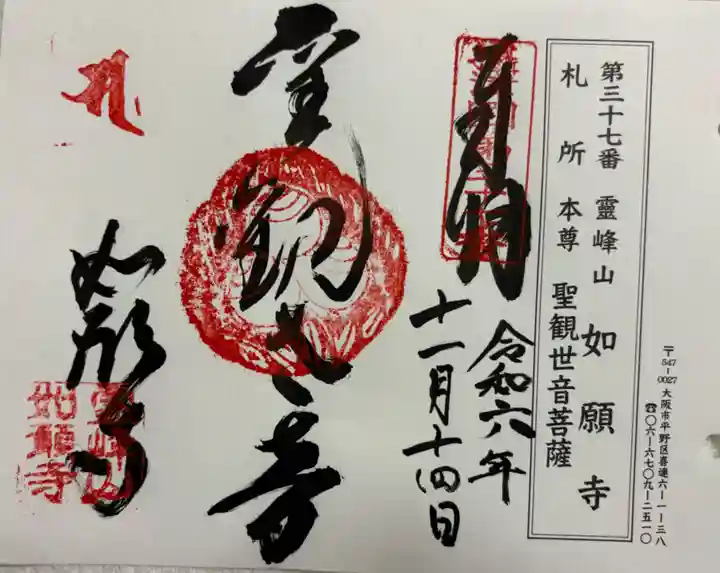 第三十七番 霊峰山 如願寺
札所本尊 聖観世音菩薩
〒547-0027 大阪市平野区喜連六-一-三八
☎〇六-六七〇九-二五一〇
奉拝
令和六年
十一月十四日
聖観世音
如願寺
霊峰山
如願寺